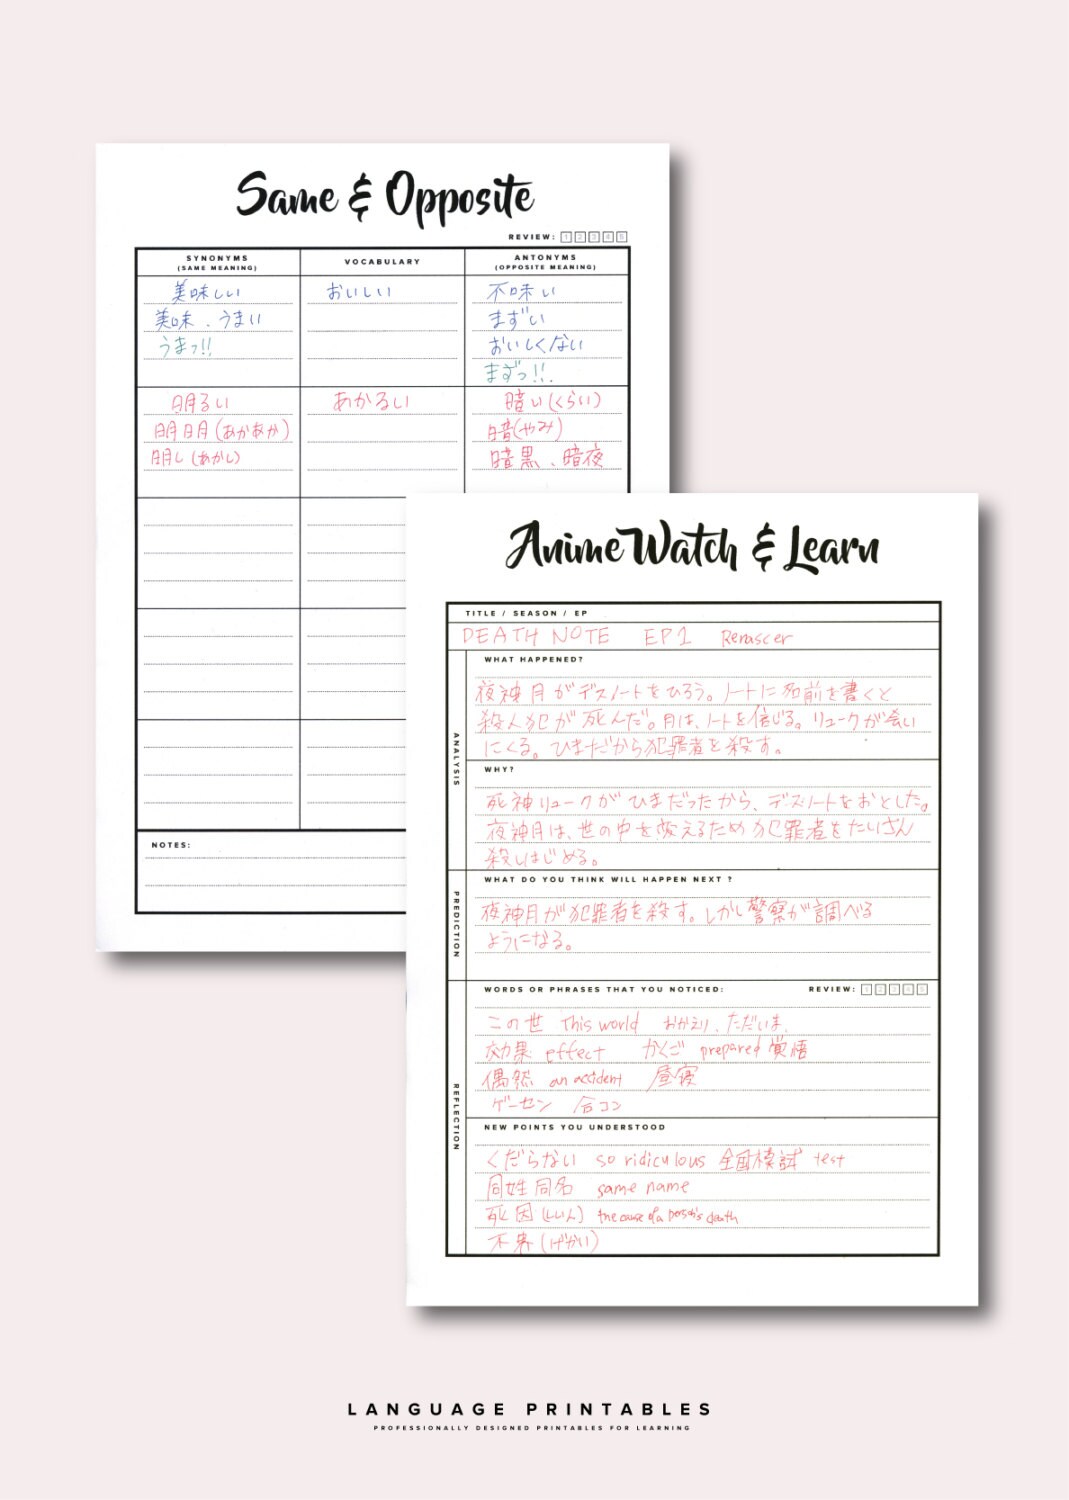 Same & Opposite
REVIEW: 1 2 3 4 5
SYNONYMS
(SAME MEANING)
VOCABULARY
ANTONYMS
(OPPOSITE MEANING)
美味しい
おいしい
不味い
美味、うまい
まずい
うまっ!!
おいしくない
まずっ!!
明るい
あかるい
暗い(くらい)
明明(あかあか)
暗(やみ)
明し(あかし)
暗黒、暗夜
NOTES:
Anime Watch & Learn
TITLE / SEASON / EP
DEATH NOTE EP1
ANALYSIS
WHAT HAPPENED?
夜神月がデスノートをひろう。ノートに名前を書くと
殺人犯が死んだ。月は、ノートを信じる。リュークが会い
にくる。ひまだから犯罪者を殺す。
WHY?
死神リュークがひまだったから、デスノートをおとした。
夜神月は、世の中を変えるため犯罪者をたいさん
殺しはじめる。
PREDICTION
WHAT DO YOU THINK WILL HAPPEN NEXT ?
夜神月が犯罪者を殺す。しかし警察が調べる
ようになる。
REFLECTION
WORDS OR PHRASES THAT YOU NOTICED:
REVIEW: 1 2 3 4 5
この世 This world おかえり、ただいま、
効果 effect かくご prepared 覚悟
偶然 an accident 昼寝
ゲーセン 合コン
NEW POINTS YOU UNDERSTOOD
くだらない so ridiculous 全国模試 test
同姓同名 same name
死因(しいん) the cause of a person's death
(げかい)
LANGUAGE PRINTABLES
PROFESSIONALLY DESIGNED PRINTABLES FOR LEARNING